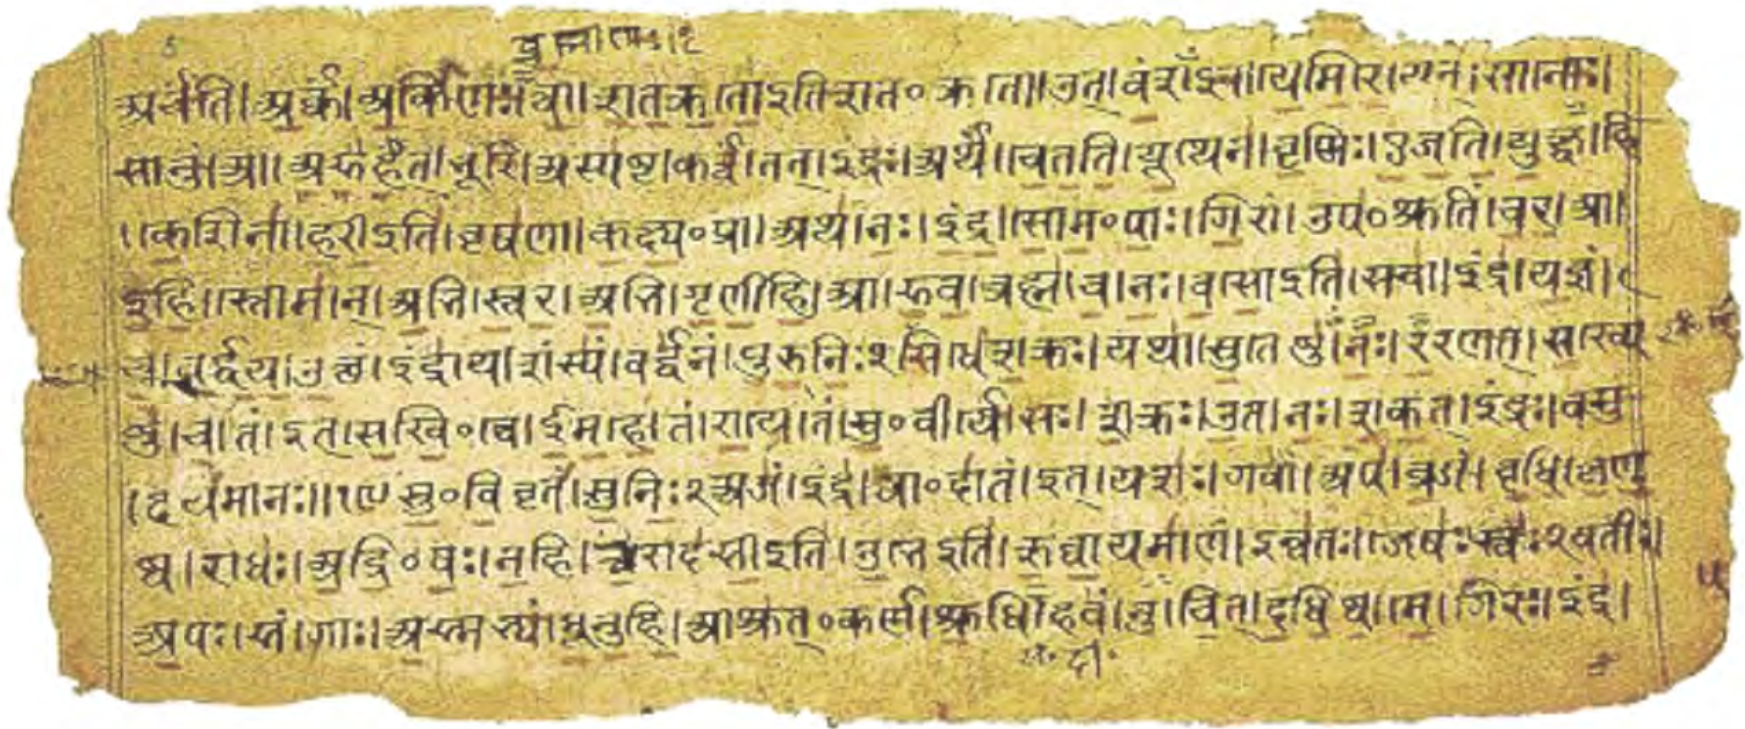 अर्चंति।अर्कं।अर्किणः।त्वा।शतक्रतोइतिशत॰क्रतो।उत्।वंशंऽइव।येमिरे।यत्।सानोः।
सानुं।आ।अरुहत्।भूरि।अस्पष्ट।कर्त्वं।तत्।इंद्रः।अर्थं।चेतति।यूथेन।वृष्णिः।एजति।युक्ष्व।हि
।केशिना।हरीइति।वृषणा।कक्ष्य॰प्रा।अथ।नः।इंद्र।सोम॰पाः।गिरां।उप॰श्रुतिं।चर।आ।
इहि।स्तोमान्।अभि।स्वर।अभि।गृणीहि।आ।रुव।ब्रह्म।च।नः।वसोइति।सचा।इंद्र।यज्ञं।
च।वर्द्धय।उक्थं।इंद्राय।शंस्यं।वर्द्धनं।पुरुनिः२सिधे।शक्रः।यथा।सुतेषु।नः।ररणत्।सख्ये
षु।च।तं।इत्।सखि॰त्वे।ईमहे।तं।राये।तं।सु॰वीर्ये।सः।शक्रः।उत।नः।शकत्।इंद्रः।वसु
।दयमानः॥१९ सु॰विवृतं।सुनिः२अजं।इंद्र।त्वा॰दातं।इत्।यशः।गवां।अप।व्रजं।वृधि।कृणु
ष्व।राधः।अद्रि॰वः।नहि।त्वारोदसीइति।उभेइति।ऋघायमाणं।इन्वतः।जेषःस्वः२वतीः।
अपः।सं।गाः।अस्मभ्यं।धूनुहि।आश्रुत्॰कर्ण।श्रुधि।हवं।नु।चित्।दधिष्व।मे।गिरः।इंद्र।